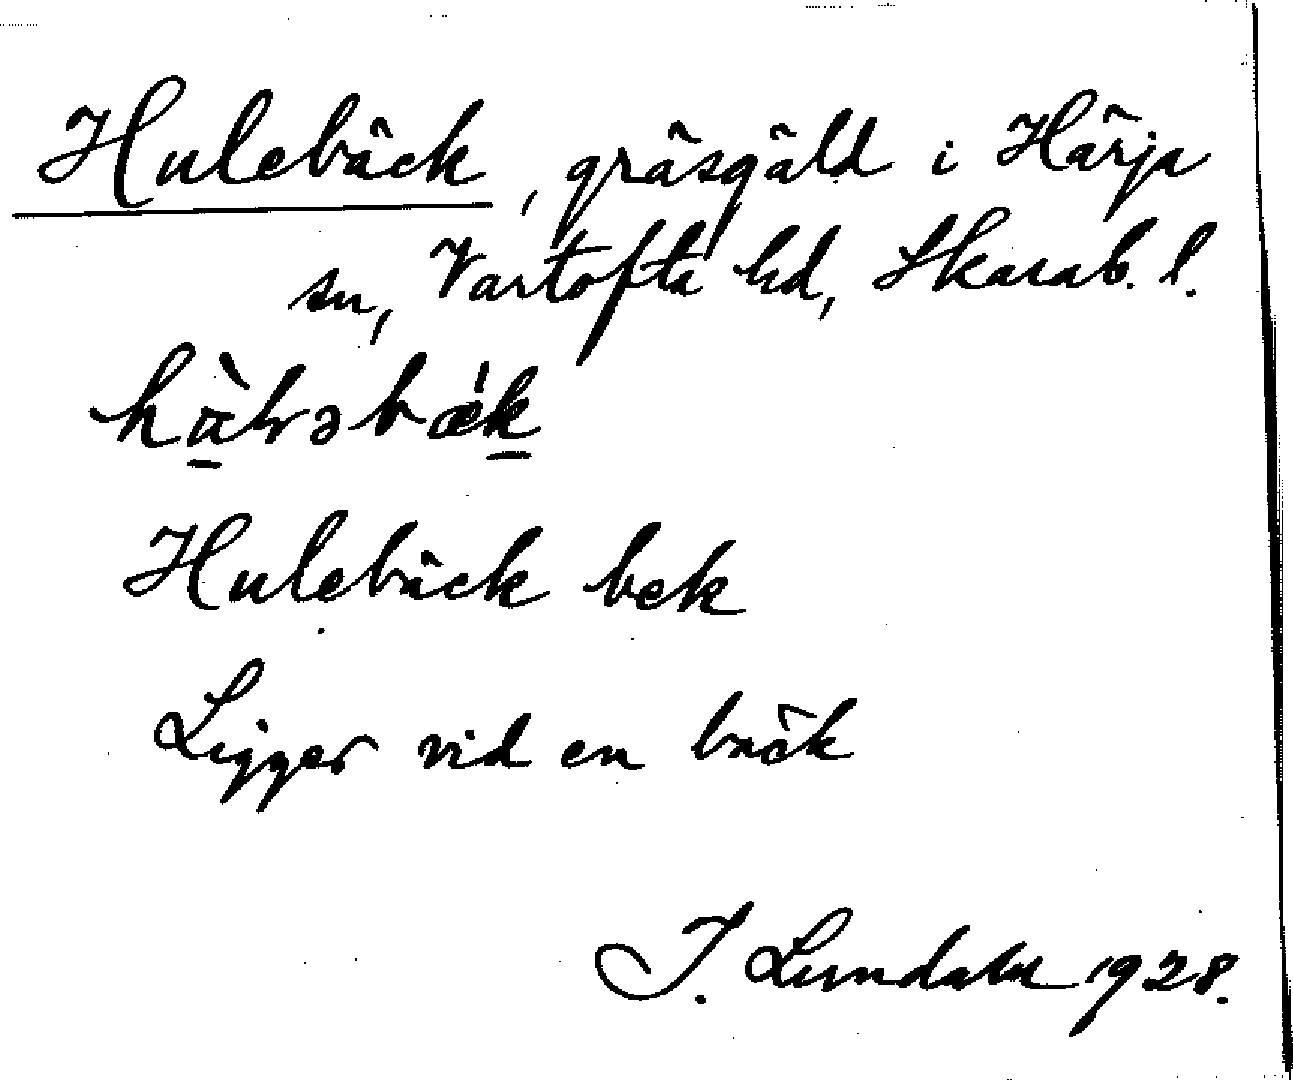 Hulebäck, gräsgäld i Härja
sn, Vartofta hd, Skarab. l.
Hulebäck bek
Ligger vid en bäck
I. Lundahl 1928.